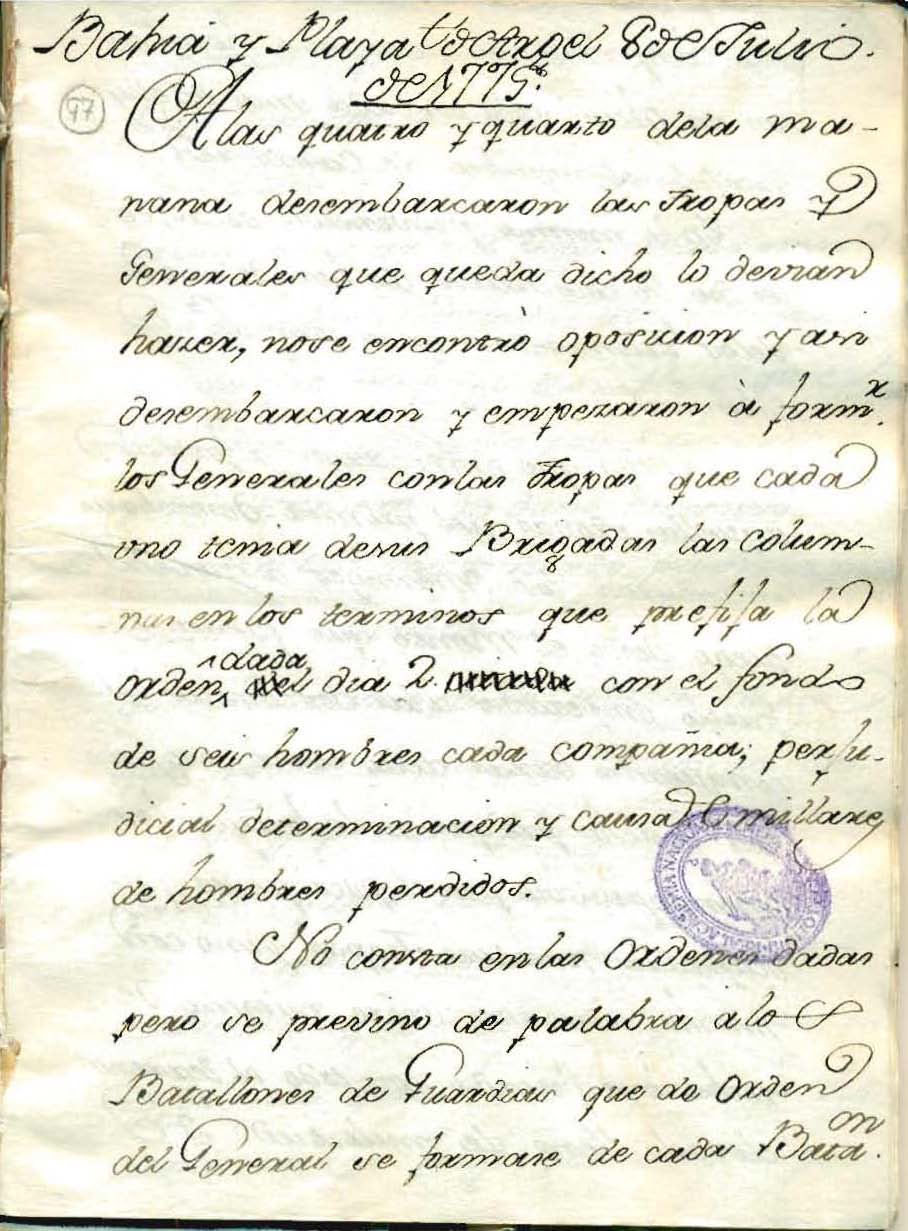 Bahia y Playa de Argel 8 de Julio.
de 1775.
97
A las quatro y quarto dela ma-
nana desembarcaron las Tropas y
Generales que queda dicho lo devian
hazer, nose encontrò oposicion y asi
desembarcaron y empezaron à form.r
los Generales conlas Tropas que cada
uno tenia desus Brigadas las colum-
nas en los terminos que prefija la
orden dada el dia 2. con el fondo
de seis hombres cada compañia; perju-
dicial determinacion y causa millares
de hombres perdidos.
No consta en las Ordenes dadas
pero se previno de palabra a los
Batallones de Guardias que de Orden
del General se formase de cada Bata.on